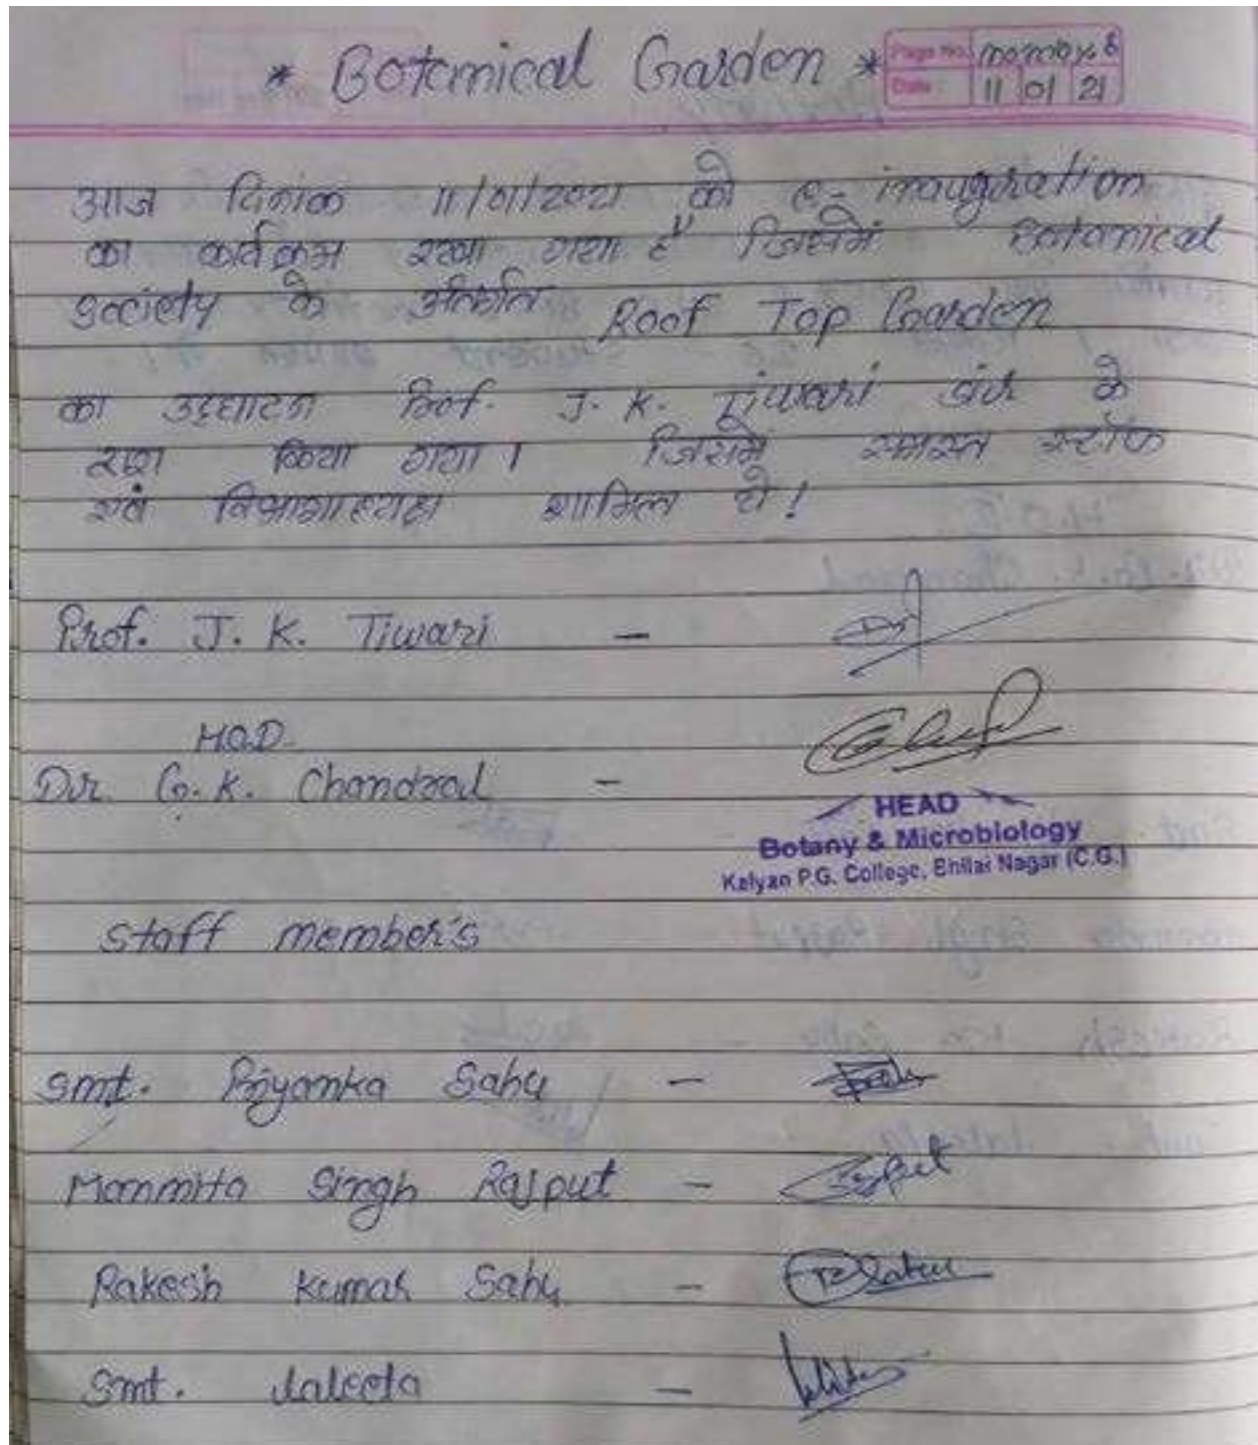 * Botanical Garden *
Page No.
Date 11 01 21
आज दिनांक 11/01/2021 को e-inauguration
का कार्यक्रम रखा गया है जिसमें Botanical
society के अंतर्गत Roof Top Garden
का उद्घाटन Prof. J. K. Tiwari के
किया गया। जिसमें समस्त स्टॉफ
एवं विभागाध्यक्ष शामिल थे!
Prof. J. K. Tiwari -
H.O.D.
Dr. G. K. Chandral -
HEAD
Botany & Microbiology
Kalyan P.G. College, Bhilai Nagar (C.G.)
Staff member's
Smt. Priyanka Sahu -
Mammita Singh Rajput -
Rajput
Rakesh Kumar Sahu -
Smt. Laleeta -